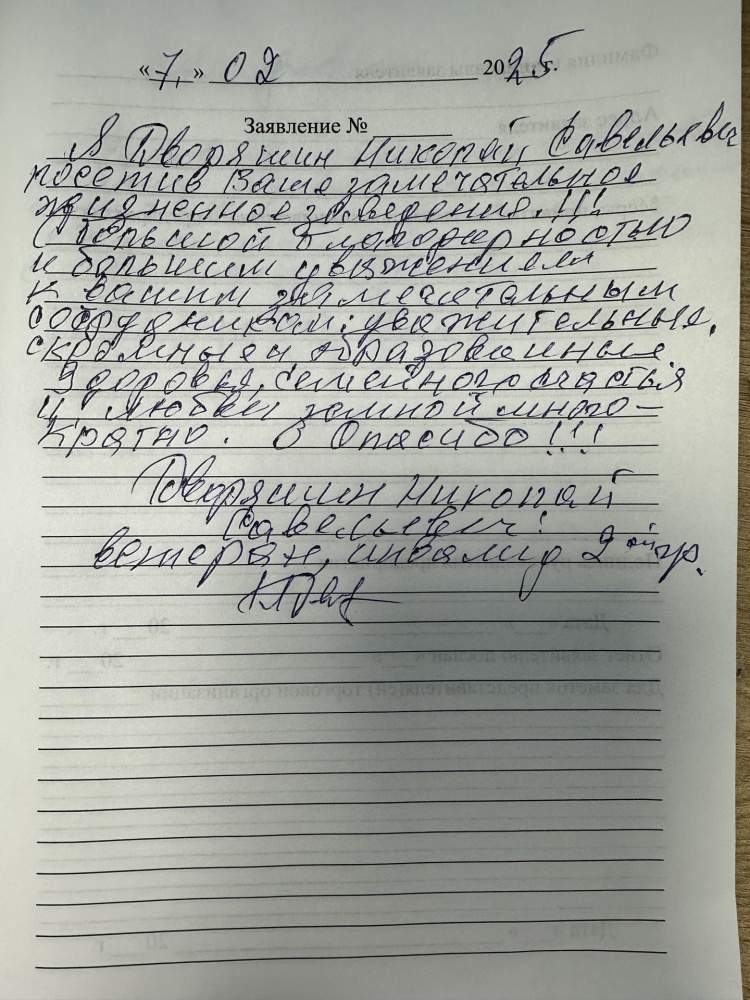 «7.» 02 2025 г.
Заявление №
Я Дворяшин Николай Савельевич
посетив Ваше замечательное
жизненное заведение.!!!
С большой благодарностью
и большим уважением
к вашим замечательным
сотрудникам: уважительные,
скромные и образованные
Здоровья, семейного счастья
и любви земной много-
кратно. Спасибо!!!
Дворяшин Николай
Савельевич!
ветеран, инвалид 2ой гр.